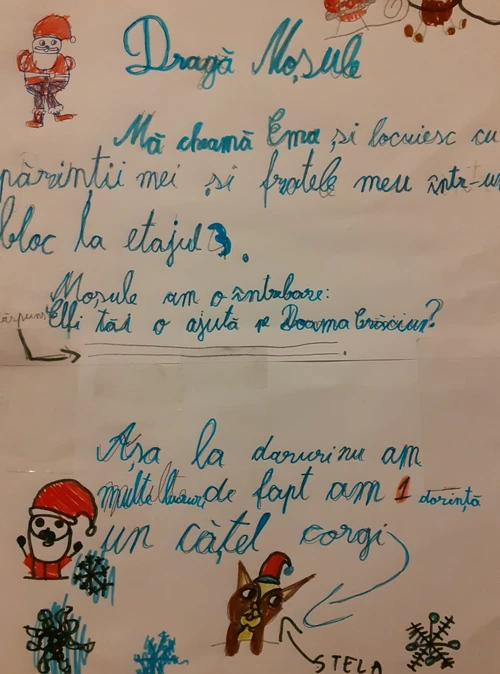 Dragă Moșule
Mă cheamă Ema și locuiesc cu
părinții mei și fratele meu într-un
bloc la etajul 3.
Moșule am o întrebare:
Elfi tăi o ajută pe Doamna Crăciun?
Așa la daruri nu am
multe lucruri de fapt am 1 dorință
un cățel corgi
STELA